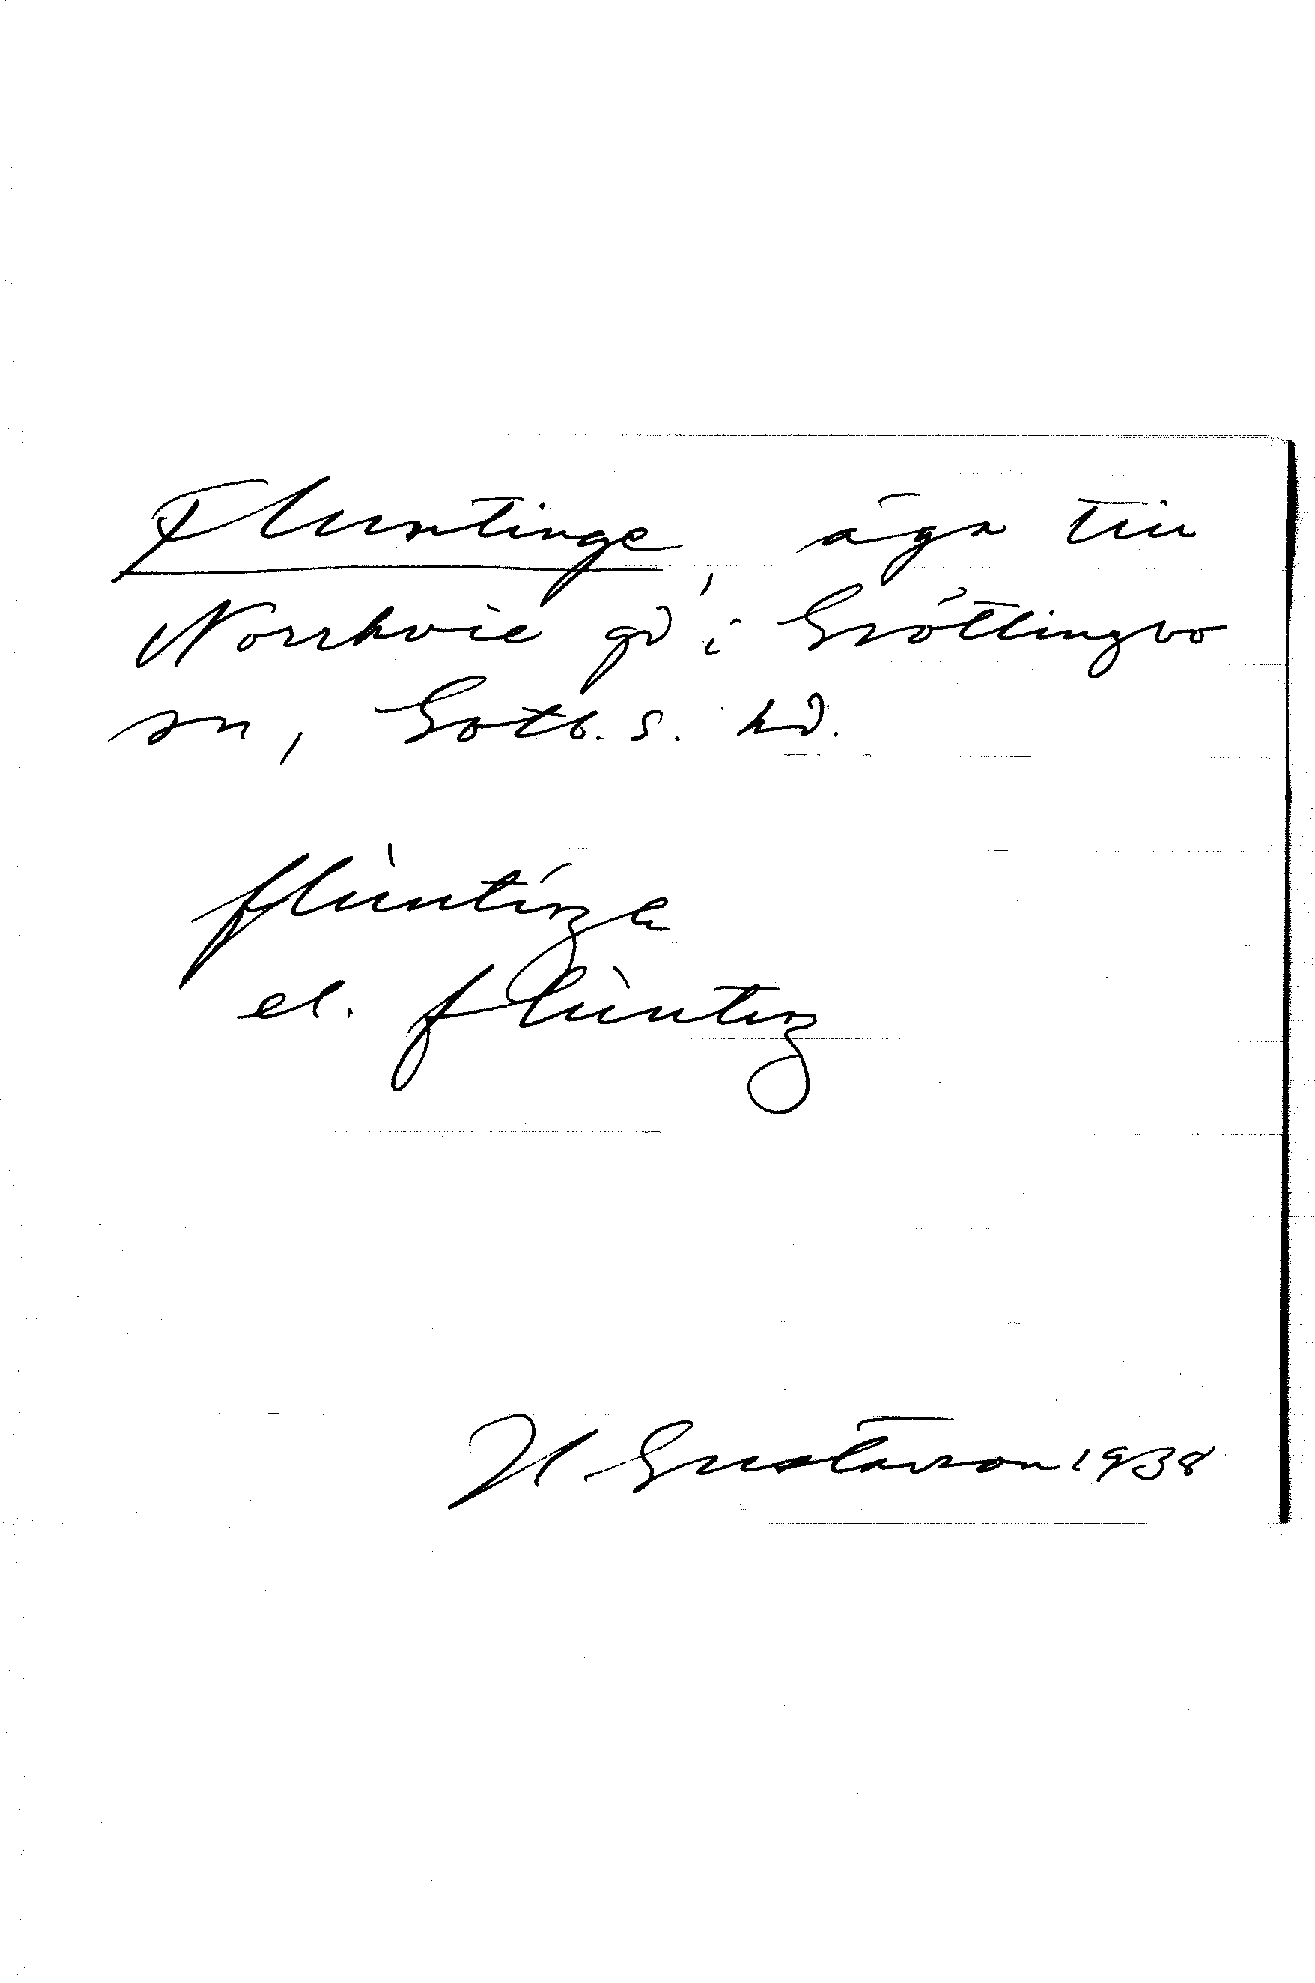 Fluntinge, äga till
Norrkvie gd i Gröttlingbo
sn, Gotl. s. hd.
flùntíŋɑ
el. flùntıŋ
H Gustavson 1938